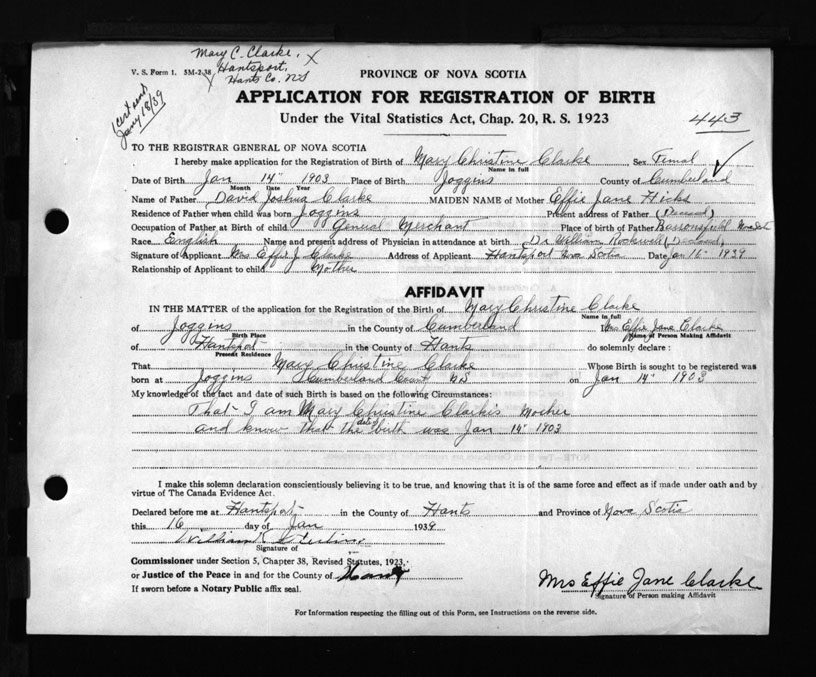 Mary C. Clarke, X
Hantsport,
Hants Co. NS
V. S. Form 1. 5M-2-38
(cert sent
Jany 18/39
PROVINCE OF NOVA SCOTIA
APPLICATION FOR REGISTRATION OF BIRTH
Under the Vital Statistics Act, Chap. 20, R. S. 1923
443
TO THE REGISTRAR GENERAL OF NOVA SCOTIA
I hereby make application for the Registration of Birth of Mary Christine Clarke Sex Femal
Name in full
Date of Birth Jan 14" 1903 Place of Birth Joggins County of Cumberland
Month Date Year
Name of Father David Joshua Clarke MAIDEN NAME of Mother Effie Jane Hicks
Residence of Father when child was born Joggins Present address of Father (Deceased)
Occupation of Father at Birth of child General Merchant Place of birth of Father Barronsfield Nova Scotia
Race English Name and present address of Physician in attendance at birth Dr William Rockwell (Deceased)
Signature of Applicant Mrs Effie J Clarke Address of Applicant Hantsport Nova Scotia Date Jan 16" 1939
Relationship of Applicant to child Mother
AFFIDAVIT
IN THE MATTER of the application for the Registration of the Birth of Mary Christine Clarke
Name in full
of Joggins in the County of Cumberland I Mrs Effie Jane Clarke
Birth Place Name of Person Making Affidavit
of Hantsport in the County of Hants do solemnly declare :
Present Residence
That Mary Christine Clarke Whose Birth is sought to be registered was
born at Joggins Cumberland County NS on Jan 14" 1903
My knowledge of the fact and date of such Birth is based on the following Circumstances:
That I am Mary Christine Clarke's Mother
and know that the date of birth was Jan 14" 1903
I make this solemn declaration conscientiously believing it to be true, and knowing that it is of the same force and effect as if made under oath and by
virtue of The Canada Evidence Act.
Declared before me at Hantsport in the County of Hants and Province of Nova Scotia
this 16 day of Jan 1939
William
Signature of
Commissioner under Section 5, Chapter 38, Revised Statutes, 1923,
or Justice of the Peace in and for the County of Hants
If sworn before a Notary Public affix seal.
Mrs Effie Jane Clarke
Signature of Person making Affidavit
For Information respecting the filling out of this Form, see Instructions on the reverse side.